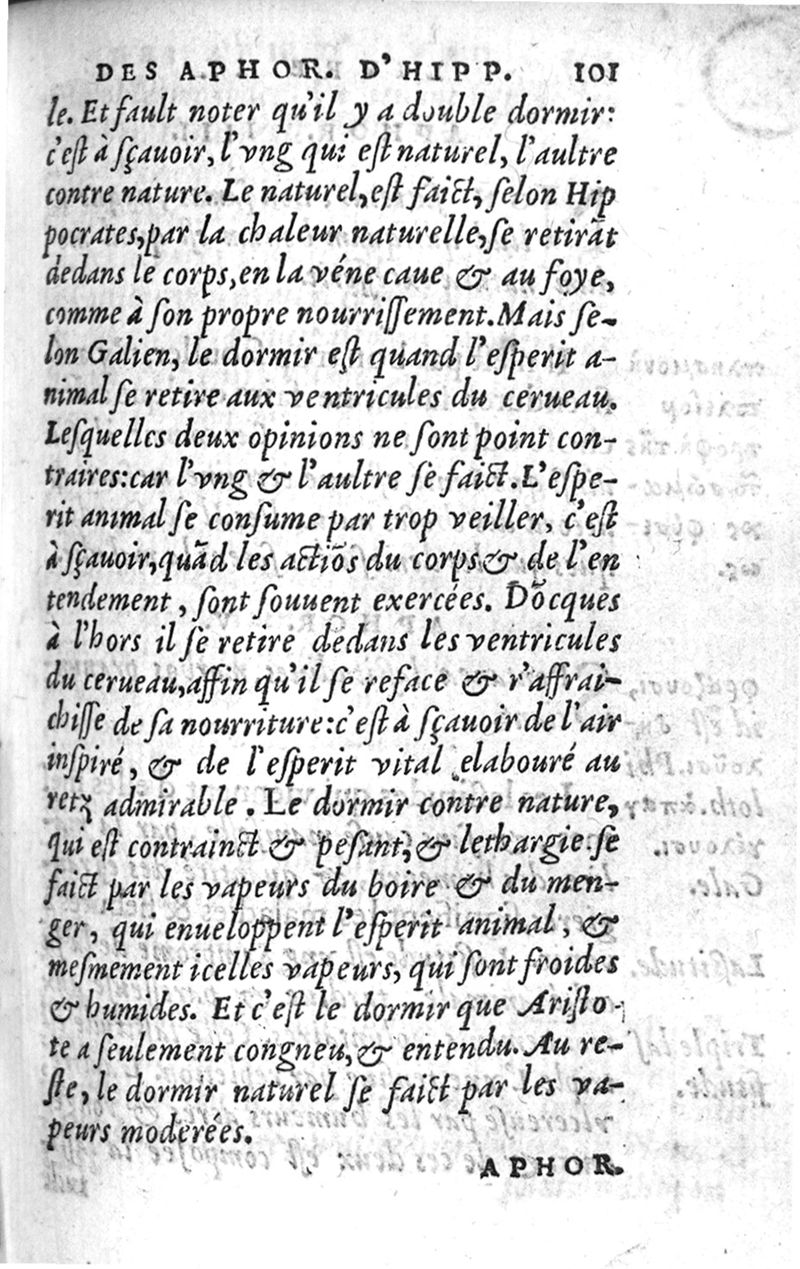 DES APHOR. D'HIPP. 101
le. Et fault noter qu'il y a double dormir:
c'eſt à ſçauoir, l'vng qui eſt naturel, l'aultre
contre nature. Le naturel, eſt faict, ſelon Hip
pocrates, par la chaleur naturelle, ſe retirãt
dedans le corps, en la véne caue & au foye,
comme à ſon propre nourriſſement. Mais ſe-
lon Galien, le dormir eſt quand l'eſperit a-
nimal ſe retire aux ventricules du cerueau.
Leſquelles deux opinions ne ſont point con-
traires: car l'vng & l'aultre ſe faict. L'eſpe-
rit animal ſe conſume par trop veiller, c'eſt
à ſçauoir, quãd les actiõs du corps & de l'en
tendement, ſont ſouuent exercées. Dõcques
à l'hors il ſe retire dedans les ventricules
du cerueau, affin qu'il ſe reface & r'affrai-
chiſſe de ſa nourriture: c'eſt à ſçauoir de l'air
inſpiré, & de l'eſperit vital elabouré au
retz admirable. Le dormir contre nature,
qui eſt contrainct & peſant, & lethargie: ſe
faict par les vapeurs du boire & du men-
ger, qui enueloppent l'eſperit animal, &
meſmement icelles vapeurs, qui ſont froides
& humides. Et c'eſt le dormir que Ariſto-
te a ſeulement congneu, & entendu. Au re-
ſte, le dormir naturel ſe faict par les va-
peurs moderées.
APHOR.